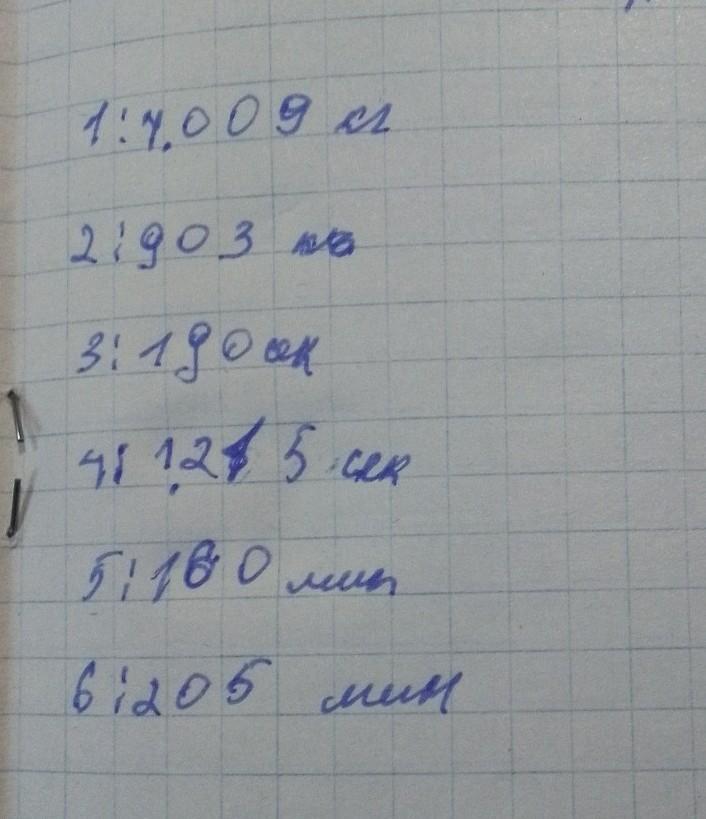 1:4.009 кг
2:903
3:190 сек
4: 1.215 сек
5:160 мин
6:205 мин